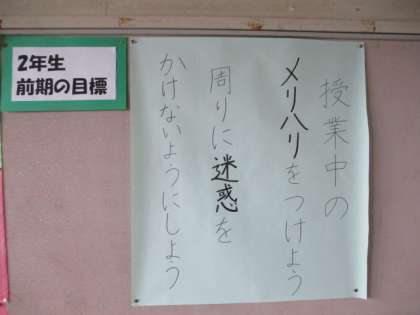 2年生
前期の目標
授業中の
メリハリをつけよう
周りに迷惑を
かけないようにしよう